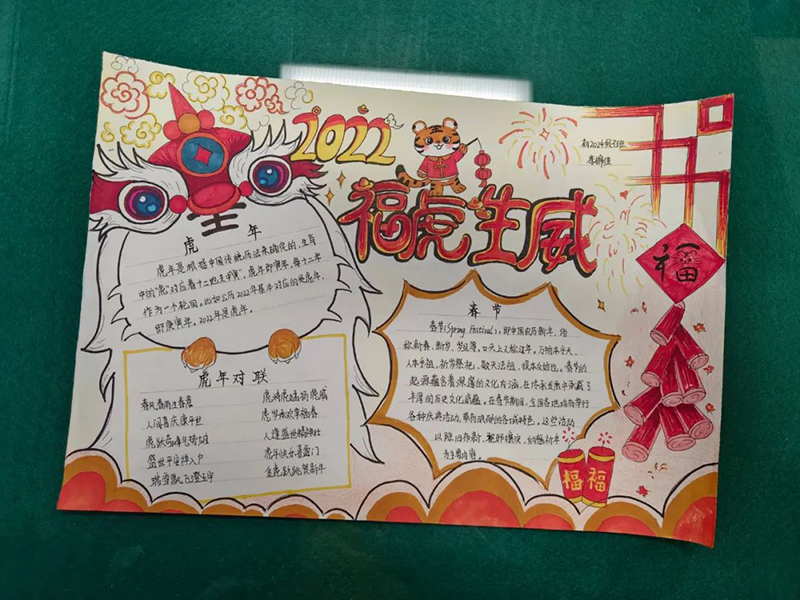 2022
福虎生威
初2024级3班
福
虎 年
虎年是根据中国传统历法来确定的,生肖
中的"虎"对应着十二地支的"寅",虎年即寅年,每十二年
作为一个轮回。比如公历2022年基本对应的是虎年,
即庚寅年。2022年是虎年。
虎年对联
春风春雨生春意
人间喜庆康平世
盛世平安祥入户
虎岁承欢享福春
人逢盛世精神壮
虎年快乐喜盈门
金虎跃跳贺新年
春节
春节(Spring Festival),即中国农历新年,俗
称新春、新岁、岁旦等,口头上又称过年。万物本乎天、
人本乎祖,祈岁祭祀、敬天法祖,报本反始也。春节的
起源蕴含着深厚的文化内涵,在传承发展中承载了
丰厚的历史文化底蕴。在春节期间,全国各地均有举行
各种庆典活动,带有浓郁的各域特色。这些活动
以除旧布新、驱邪攘灾、纳福祈年
为主要内容。
福
福